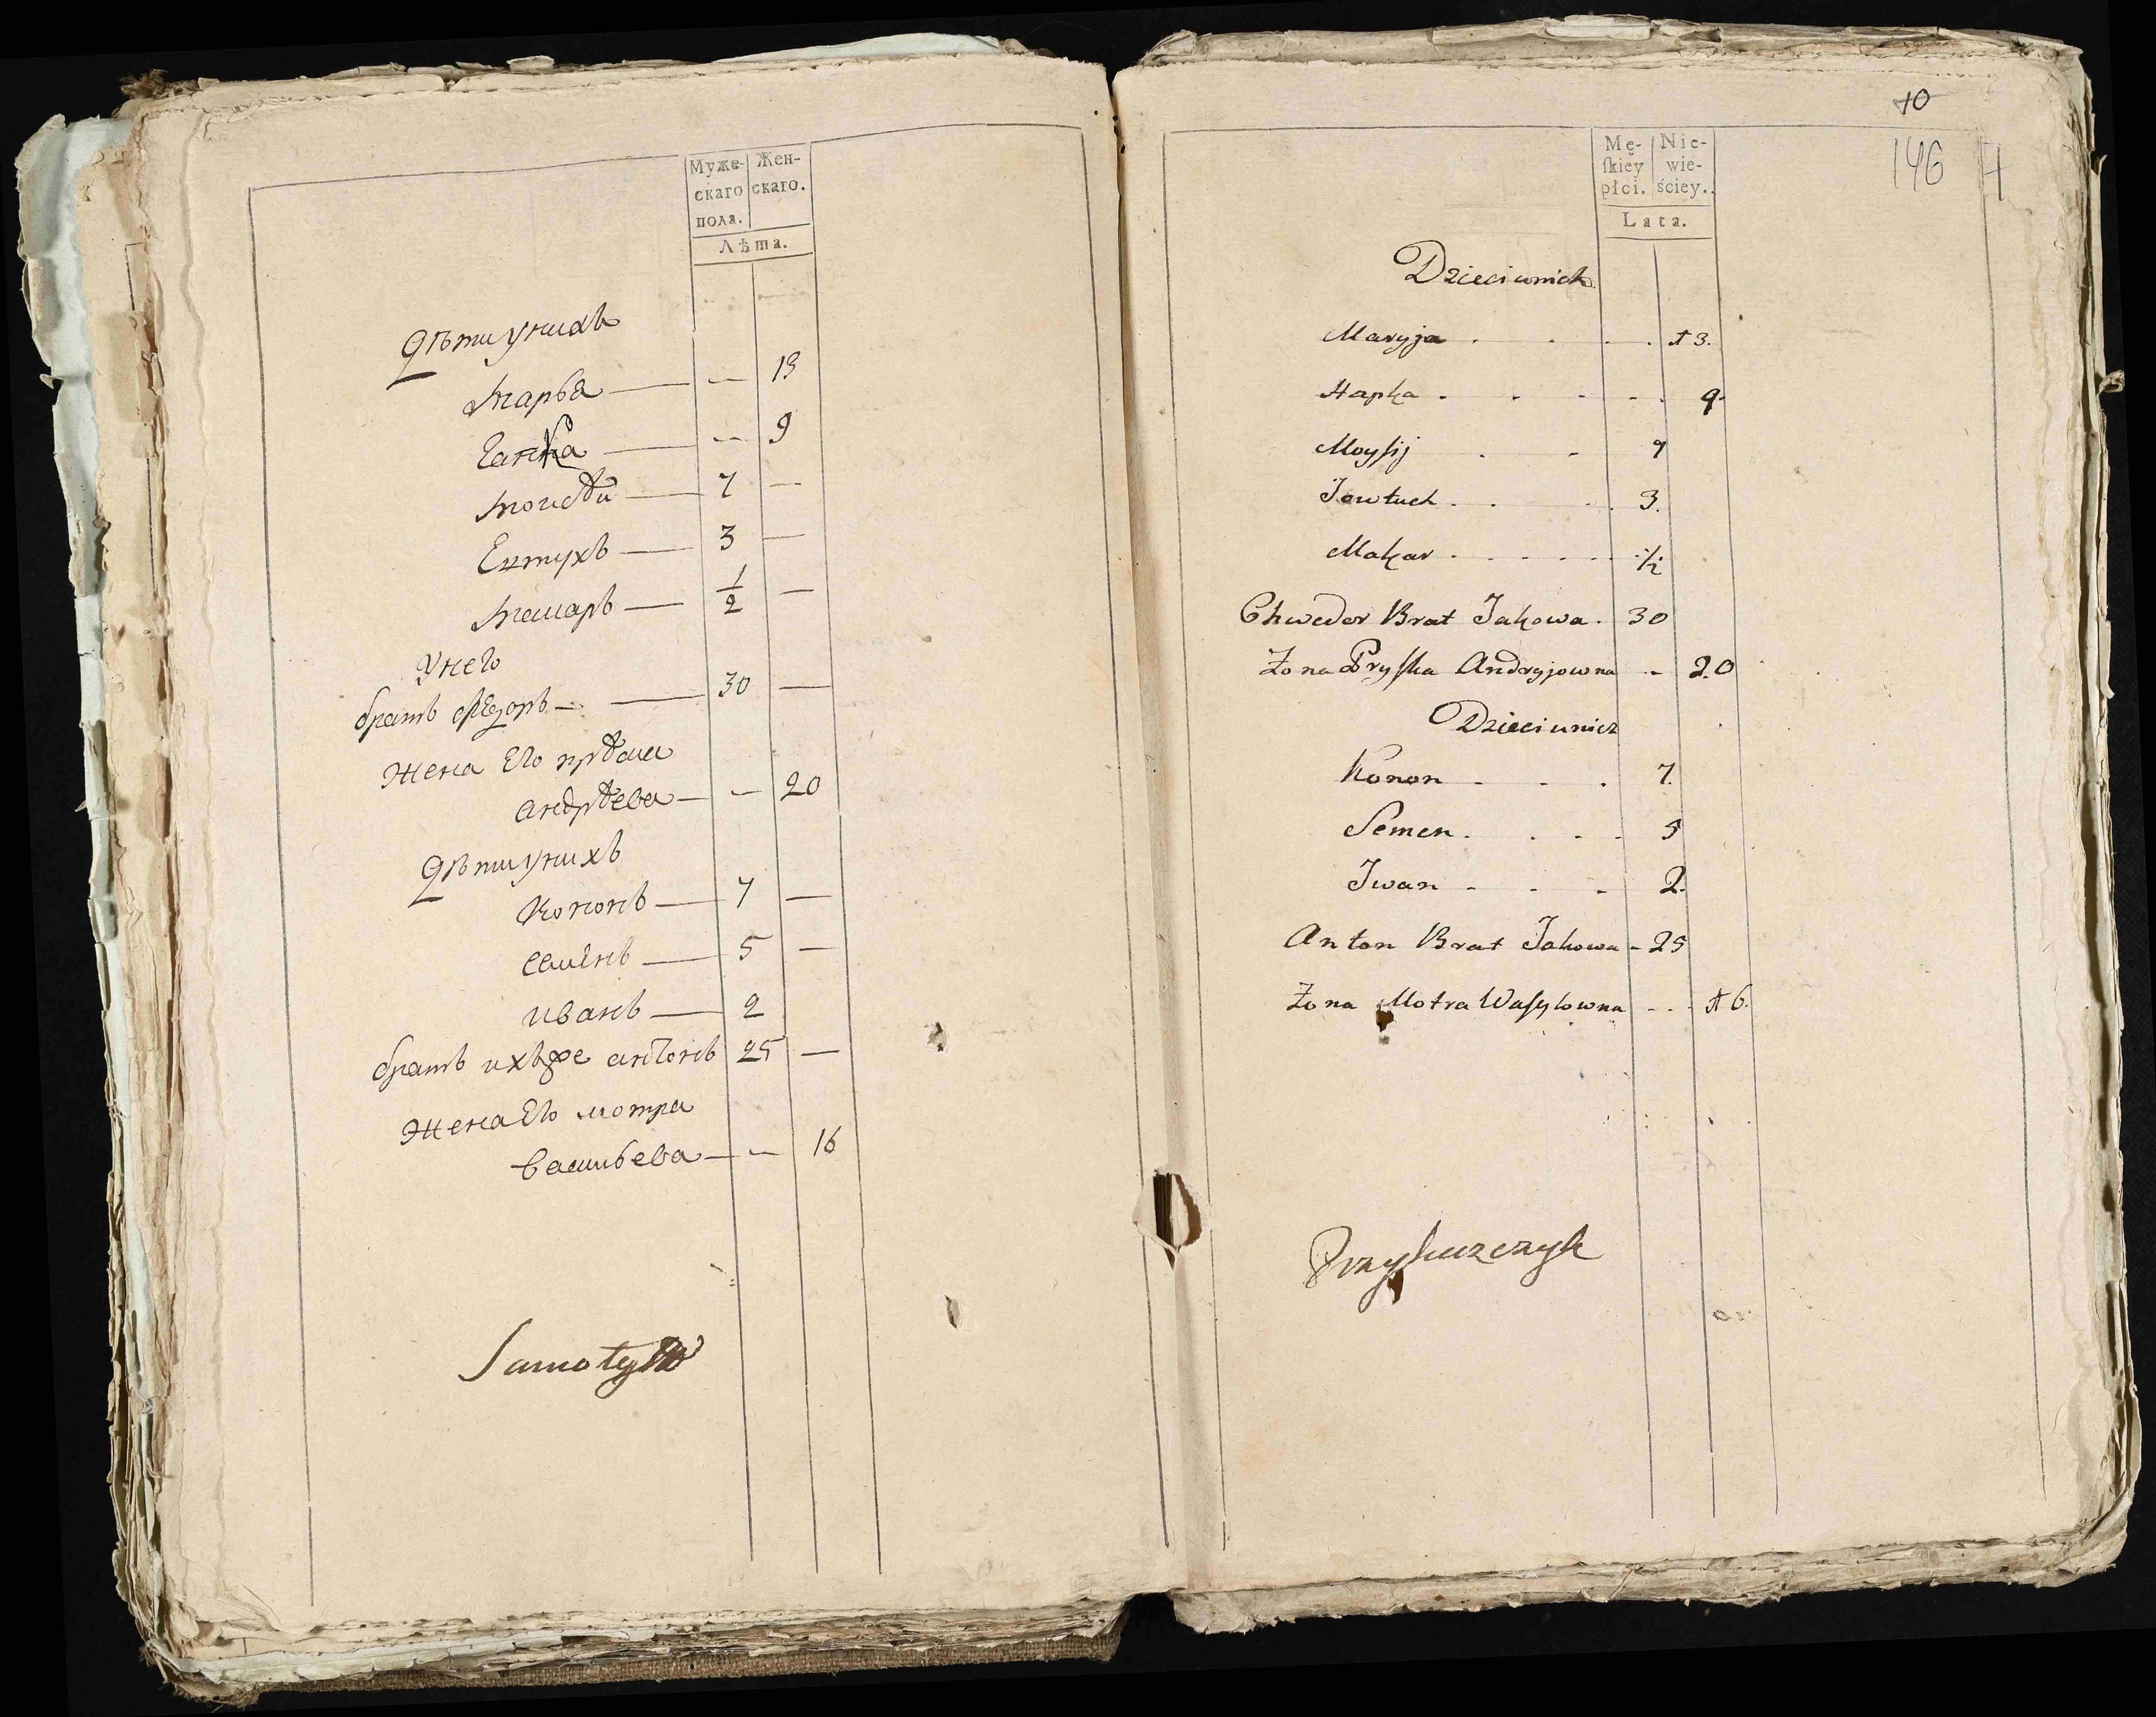 Муже-
скаго
пола.
Жен-
скаго.
Лѣта.
Дѣти у нихъ
Марья — — 13
Ганка — — 9
Моисѣй — 7 —
Евтухъ — 3 —
Макаръ — 1/2 —
У него
братъ Федоръ — 30 —
Жена Его прѣска
андрѣева — — 20
Дѣти у нихъ
Кононъ — 7 —
семенъ — 5 —
иванъ — 2
братъ ихъ же антонъ 25 —
Жена Его мотра
васильева — — 16
10
146
Mę-
skiey
płci.
Nie-
wie-
ściey.
Lata.
Dzieci u nich
Maryja . . . . 13.
Hapka . . . . . 9.
Moysij . . 7
Jewtuch . . . 3.
Makar . . . . . 1/2
Chwedor Brat Jakowa . 30
Żona Pryska Andryjowna - 20
Dzieci u nich
Konon . . . 7.
Semen . . . . 5
Iwan . . . 2.
Anton Brat Jakowa - 25
Żona Motra Wasylowna - - - 16.